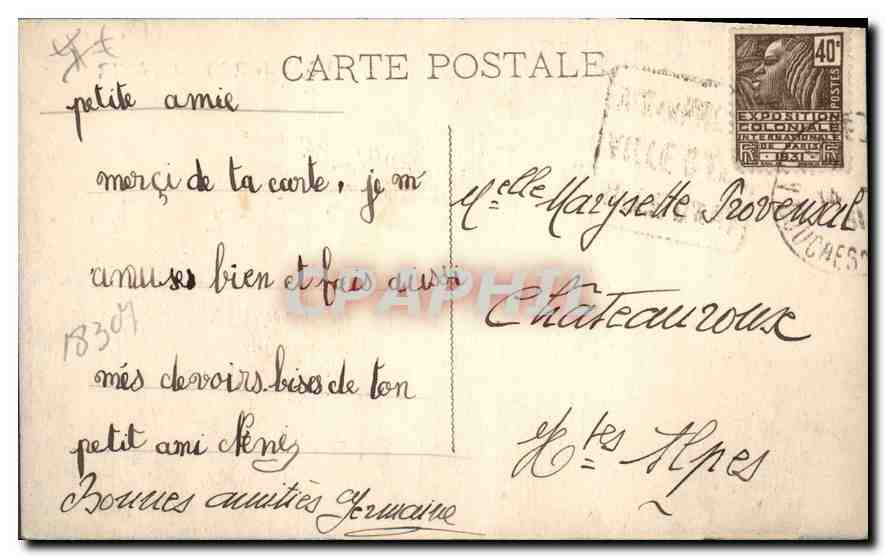 CARTE POSTALE
petite amie
merçi de ta carte, je m'
amuses bien et fais aussi
més devoirs. bises de ton
petit ami Néné
Bonnes amitiés Germaine
18307
Melle Marysette Provensal
Châteauroux
Htes Alpes
40c
POSTES
EXPOSITION
COLONIALE
INTERNATIONALE
DE PARIS
1931
VILLE
CPAPHIL